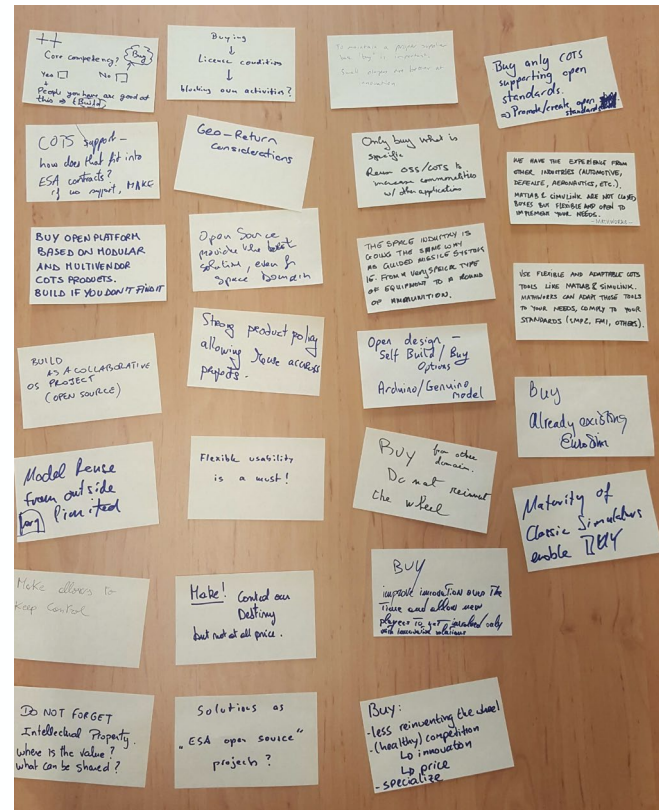 ++
Core competency?
Buy
Yes
No
People you have are good at
this ⇒ (Build)
COTS support -
how does that fit into
ESA contracts?
if no support, MAKE
BUY OPEN PLATFORM
BASED ON MODULAR
AND MULTIVENDOR
COTS PRODUCTS.
BUILD IF YOU DON'T FIND IT
BUILD
AS A COLLABORATIVE
OS PROJECT
(OPEN SOURCE)
Model Reuse
from outside
limited
Make allows to
keep control
DO NOT FORGET
Intellectual Property.
where is the value?
what can be shared?
Buying
↓
Licence condition
↓
blocking own activities?
Geo-Return
Considerations
Open Source
provides the best
solution, even for
Space Domain
Strong product policy
allowing reuse accross
projects.
Flexible usability
is a must!
Make! Control our
Destiny
but not at all price.
Solutions as
"ESA open source"
projects?
To maintain a proper supplier
base "buy" is important.
Only buy what is
specific
Reuse OSS/COTS to
increase commonalities
w/ other applications
THE SPACE INDUSTRY IS
GOING THE SAME WAY
AS GUIDED MISSILE SYSTEMS
IE. FROM A VERY SPECIAL TYPE
OF EQUIPMENT TO A ROUND
OF AMMUNITION.
Open design -
Self Build / Buy
Options
Arduino/Genuino
model
Buy from other
domain.
Do not reinvent
the wheel
BUY
improve innovation over the
Time and allow new
players to get involved only
with innovative solutions
Buy:
- less reinventing the wheel
- (healthy) competition
↳ innovation
↳ price
- specialize
Buy only COTS
supporting open
standards.
⇒ Promote/create open
standards
WE HAVE THE EXPERIENCE FROM
OTHER INDUSTRIES (AUTOMOTIVE,
DEFENCE, AERONAUTICS, ETC.).
MATLAB & SIMULINK ARE NOT CLOSED
BUSES BUT FLEXIBLE AND OPEN TO
IMPLEMENT YOUR NEEDS.
- MATHWORKS -
USE FLEXIBLE AND ADAPTABLE COTS
TOOLS LIKE MATLAB & SIMULINK.
MATHWORKS CAN ADAPT THESE TOOLS
TO YOUR NEEDS, COMPLY TO YOUR
STANDARDS (SMP2, FMI, OTHERS).
Buy
Already existing
EuroSim
Maturity of
Classic Simulators
enable BUY